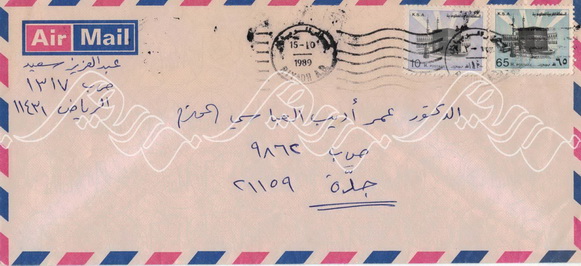 Air Mail
15-10
1989
RIYADH
K.S.A.
10
١٠
K.S.A.
65
٦٥
عبد العزيز سعيد
ص.ب ١٣١٧
الرياض ١١٤٣١
الدكتور عمر أديب العباسي المحترم
ص.ب
٩٨٦٢
جدة
٢١١٥٩